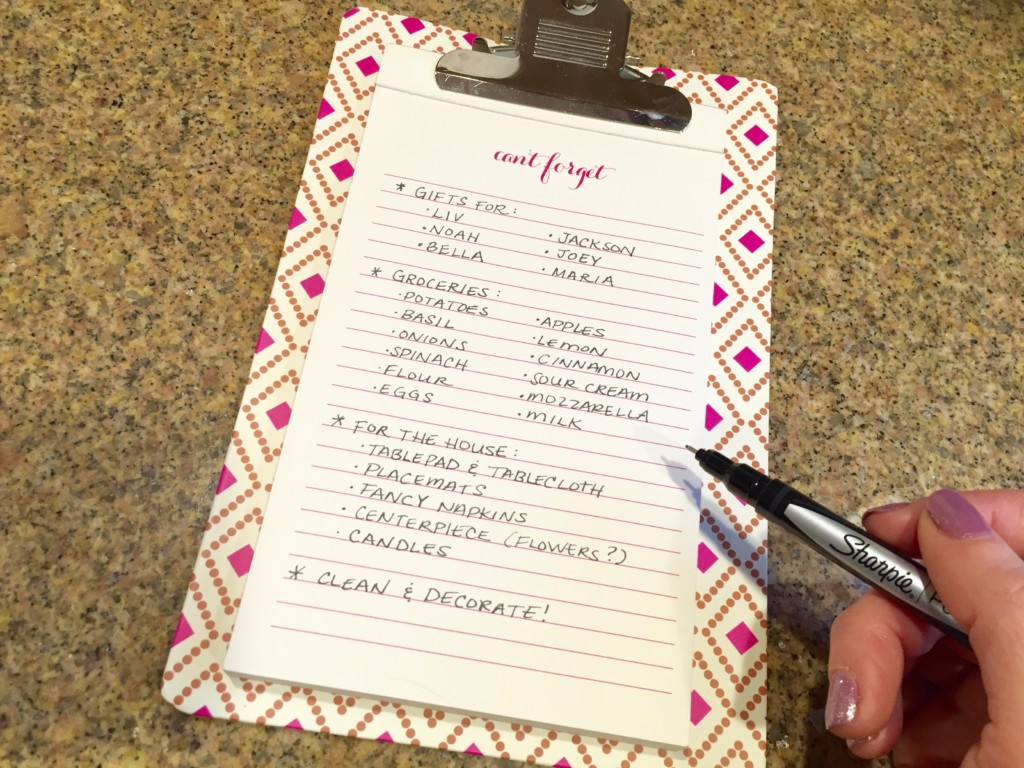 can't forget
* GIFTS FOR:
· LIV
· NOAH
· BELLA
· JACKSON
· JOEY
· MARIA
* GROCERIES:
· POTATOES
· BASIL
· ONIONS
· SPINACH
· FLOUR
· EGGS
· APPLES
· LEMON
· CINNAMON
· SOUR CREAM
· MOZZARELLA
· MILK
* FOR THE HOUSE:
· TABLEPAD & TABLECLOTH
· PLACEMATS
· FANCY NAPKINS
· CENTERPIECE (FLOWERS?)
· CANDLES
* CLEAN & DECORATE!
Sharpie